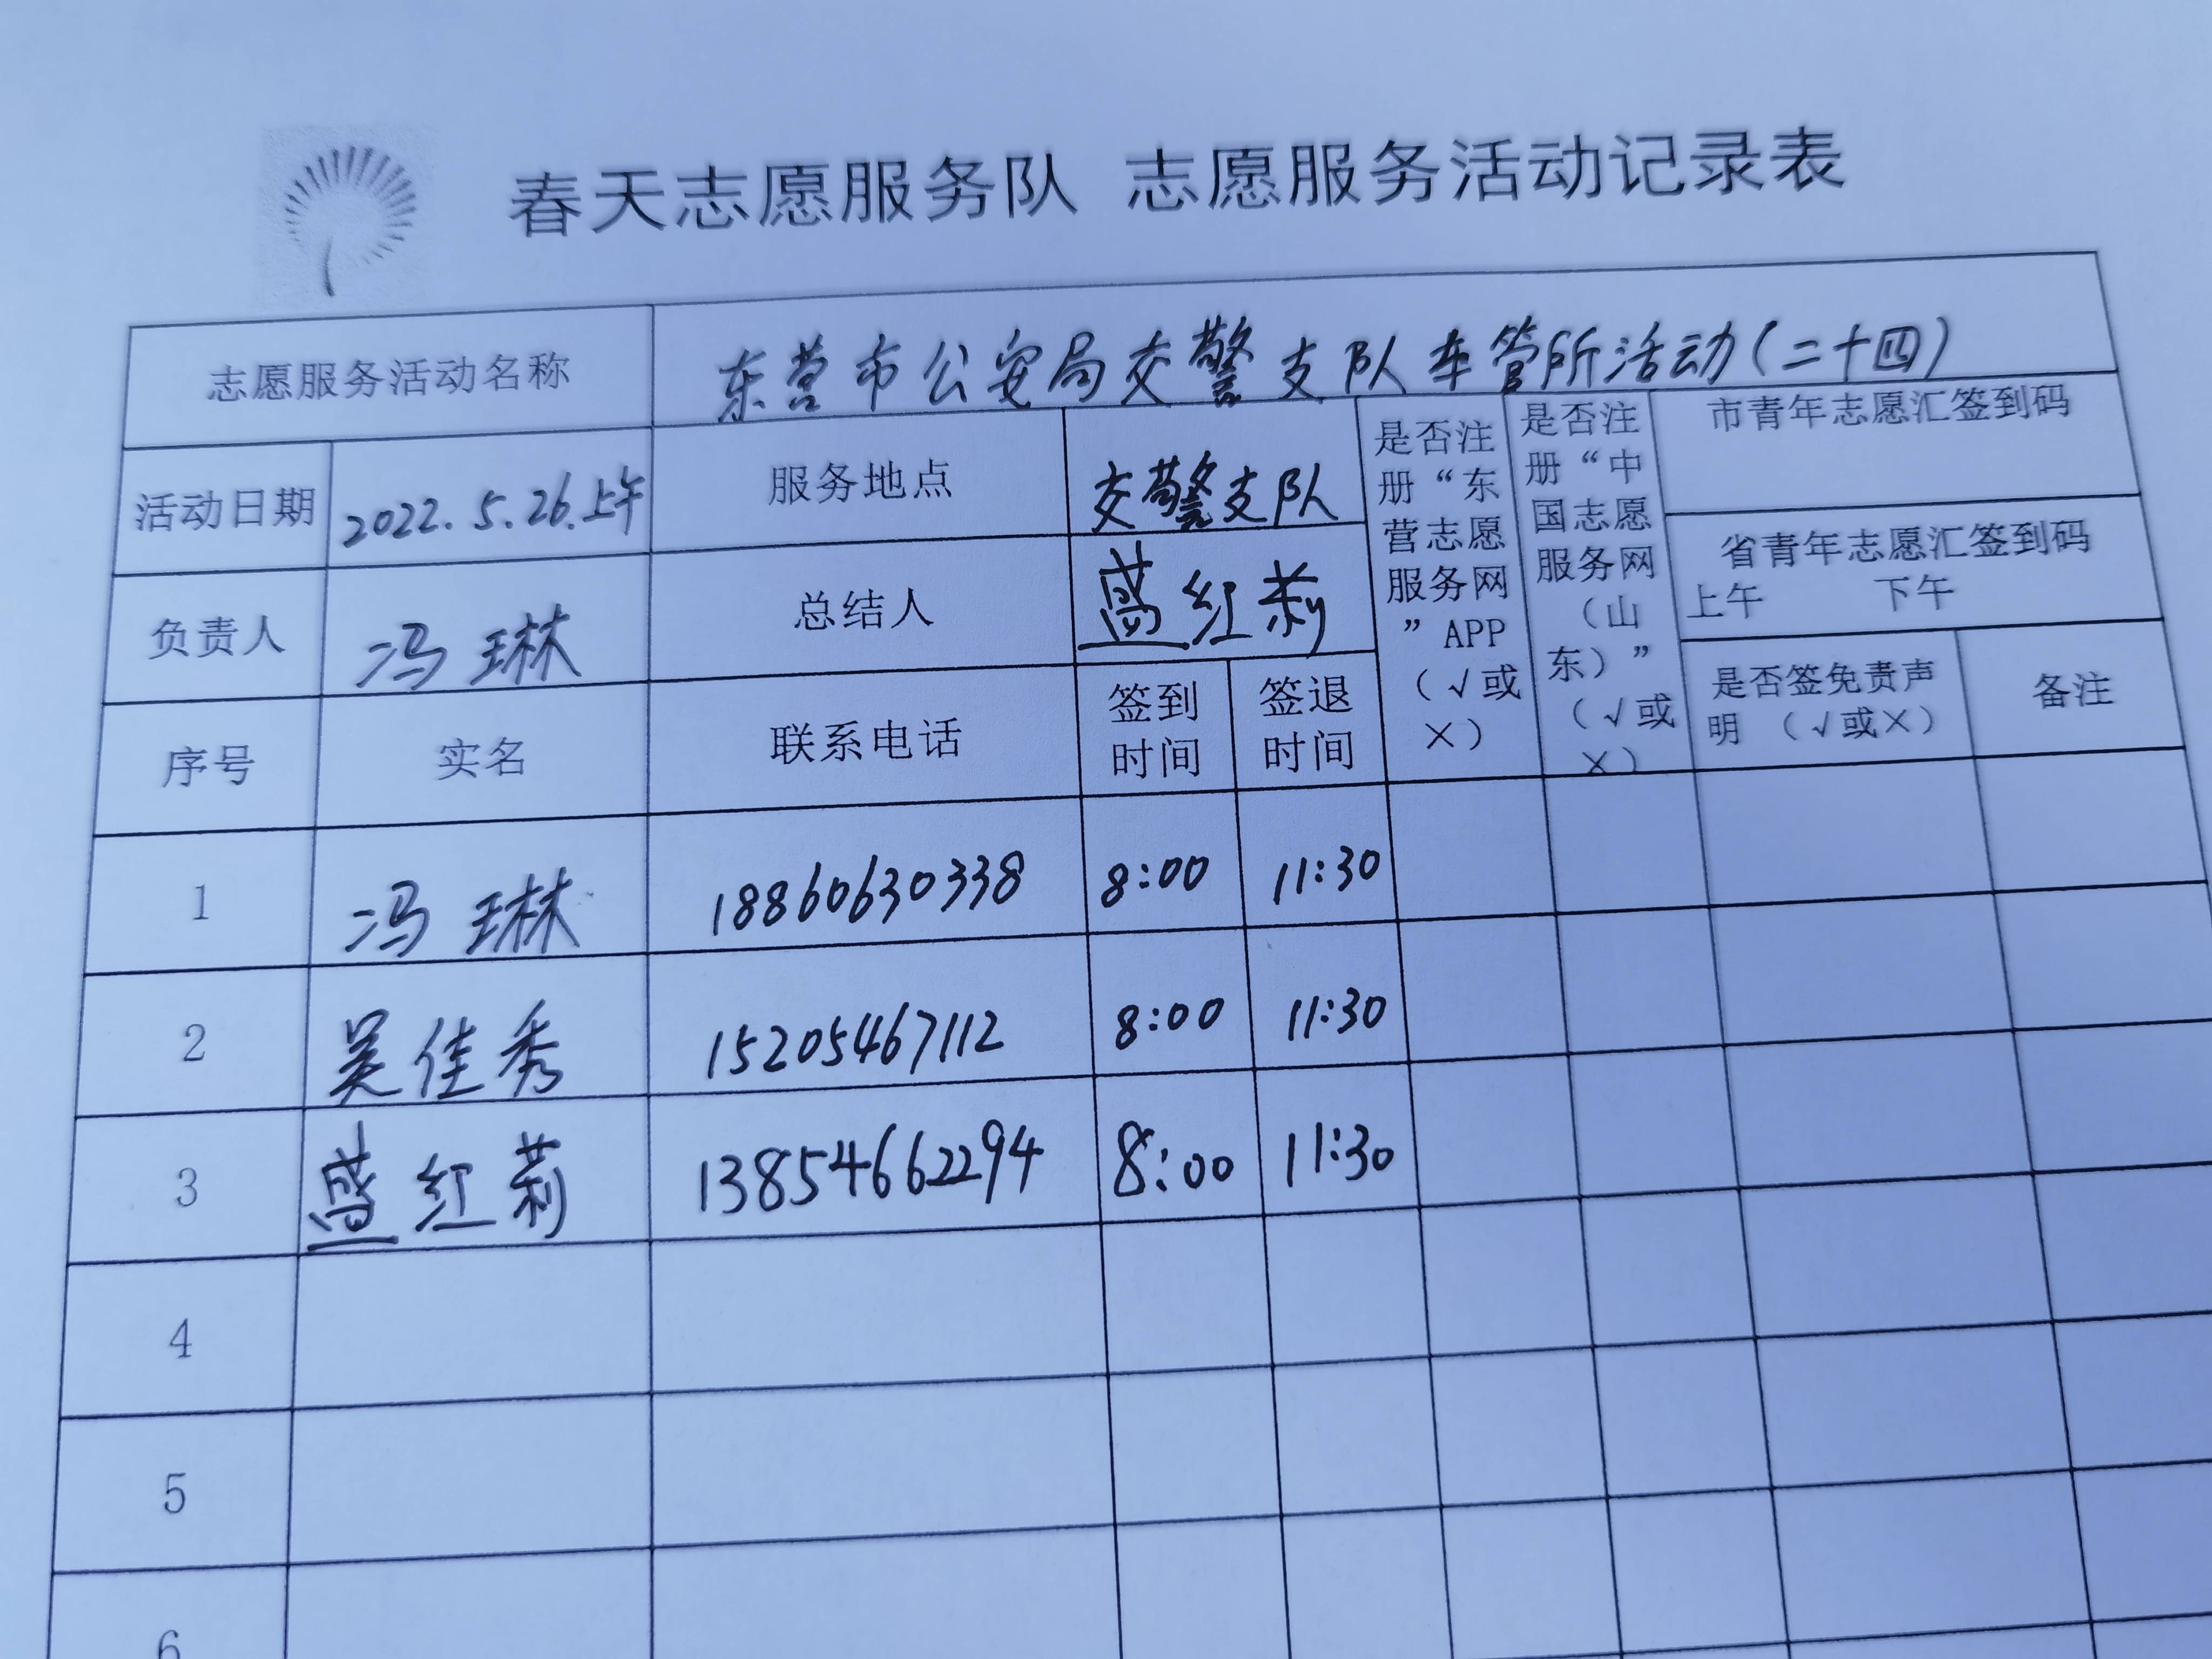 春天志愿服务队 志愿服务活动记录表
志愿服务活动名称 东营市公安局交警支队车管所活动(二十四)
活动日期 2022.5.26.上午 服务地点 交警支队
负责人 冯琳 总结人 红莉
是否注
册“东
营志愿
服务网
”APP
(√或
×)
是否注
册“中
国志愿
服务网
(山
东)”
(√或
×)
市青年志愿汇签到码
省青年志愿汇签到码
上午 下午
序号 实名 联系电话
签到
时间
签退
时间
是否签免责声
明 (√或×)
备注
1 冯琳 18860630338 8:00 11:30
2 吴佳秀 15205467112 8:00 11:30
3 红莉 13854662294 8:00 11:30
4
5
6